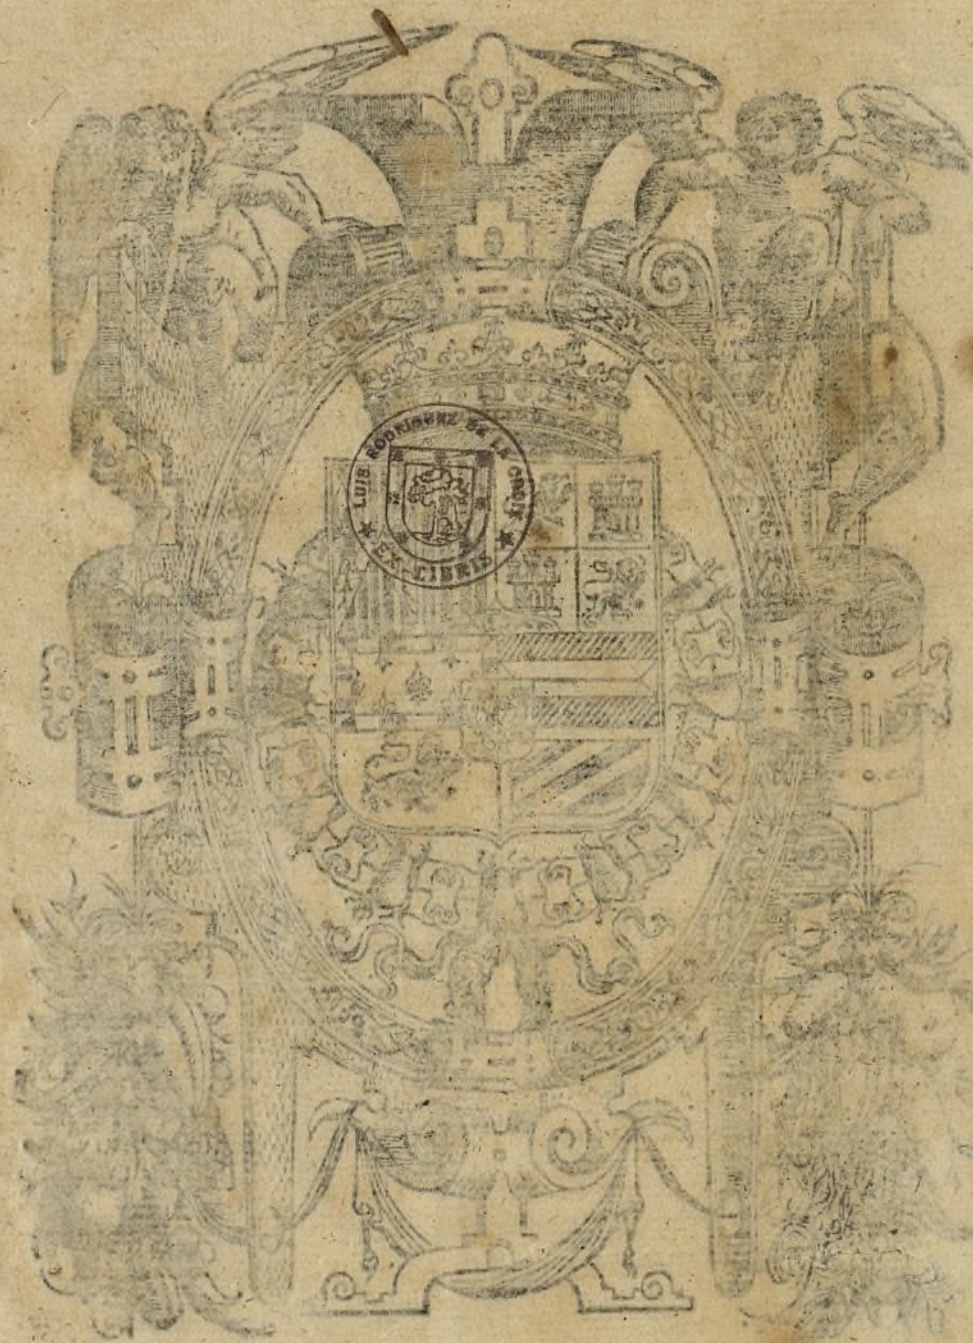 LUIS RODRIGUEZ DE LA
EX-LIBRIS